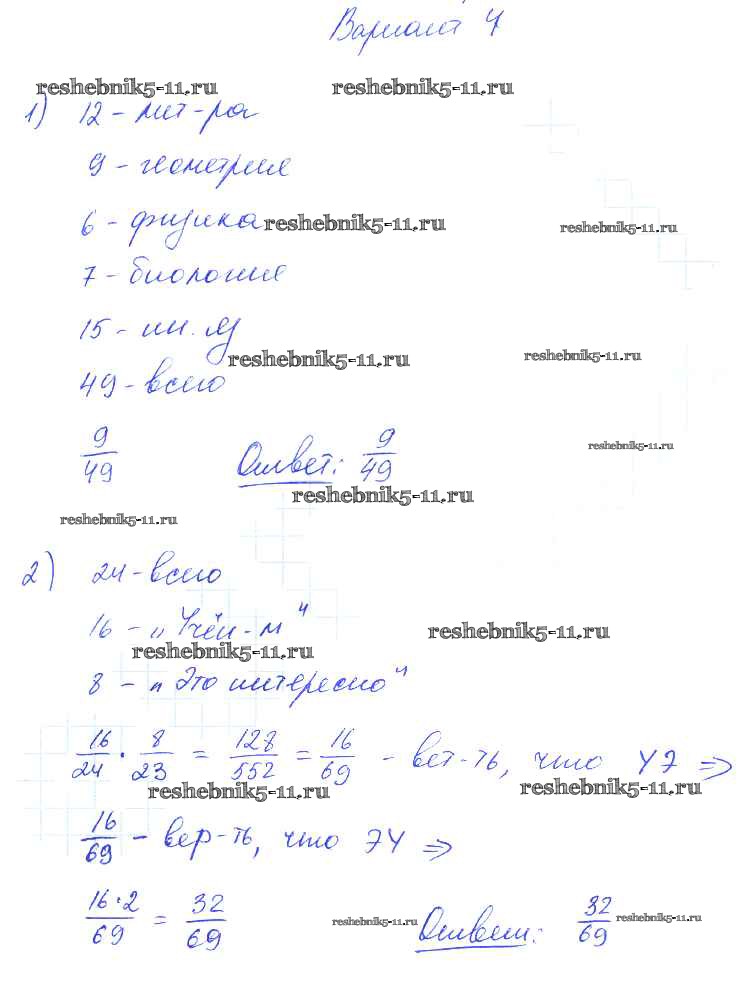 Вариант 4
reshebnik5-11.ru reshebnik5-11.ru
1) 12 - лит-ра
9 - геометрия
6 - физика reshebnik5-11.ru reshebnik5-11.ru
7 - биология
15 - ин. яз
reshebnik5-11.ru reshebnik5-11.ru
49 - всего
9/49 Ответ: 9/49
reshebnik5-11.ru
reshebnik5-11.ru
reshebnik5-11.ru
2) 24 - всего
16 - „Учён-м"
reshebnik5-11.ru reshebnik5-11.ru
8 - „Это интересно"
16/24 · 8/23 = 128/552 = 16/69 - вет-ть, что УЭ ⇒
reshebnik5-11.ru reshebnik5-11.ru
16/69 - вер-ть, что ЭУ ⇒
16·2/69 = 32/69 Ответ: 32/69
reshebnik5-11.ru reshebnik5-11.ru